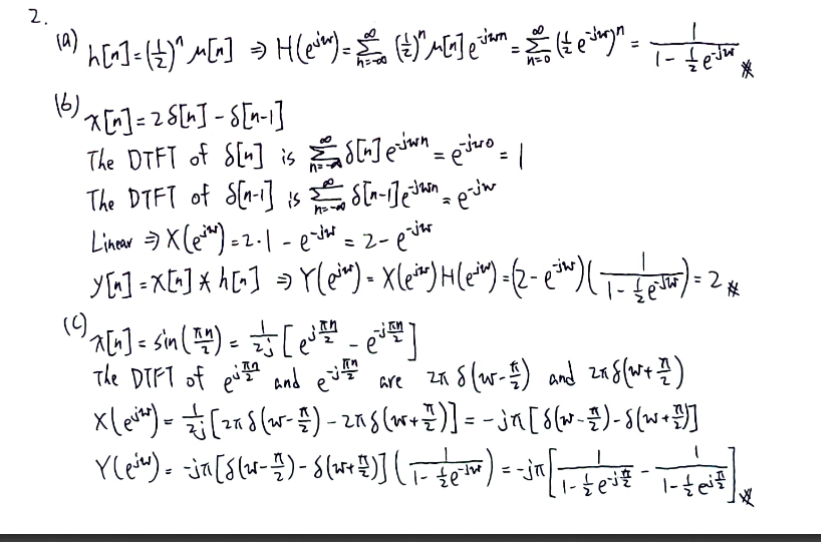 2.
(a) h[n]=(1/2)^n μ[n] ⇒ H(e^{jw})=∑_{n=-∞}^{∞} (1/2)^n μ[n] e^{-jwn} = ∑_{n=0}^{∞} (1/2 e^{-jw})^n = 1/(1-1/2 e^{-jw}) ※
(b) x[n]=2δ[n]-δ[n-1]
The DTFT of δ[n] is ∑_{n=-∞}^{∞} δ[n]e^{-jwn} = e^{-jw0} = 1
The DTFT of δ[n-1] is ∑_{n=-∞}^{∞} δ[n-1]e^{-jwn} = e^{-jw}
Linear ⇒ X(e^{jw})=2·1-e^{-jw}=2-e^{-jw}
y[n]=x[n]*h[n] ⇒ Y(e^{jw})=X(e^{jw})H(e^{jw})=(2-e^{-jw})(1/(1-1/2 e^{-jw}))=2 ※
(c) x[n]=sin(πn/2)=1/2j [e^{jπn/2}-e^{-jπn/2}]
The DTFT of e^{jπn/2} and e^{-jπn/2} are 2πδ(w-π/2) and 2πδ(w+π/2)
X(e^{jw})=1/2j [2πδ(w-π/2)-2πδ(w+π/2)]=-jπ[δ(w-π/2)-δ(w+π/2)]
Y(e^{jw})=-jπ[δ(w-π/2)-δ(w+π/2)](1/(1-1/2 e^{-jw}))=-jπ[1/(1-1/2 e^{-jπ/2})-1/(1-1/2 e^{jπ/2})] ※